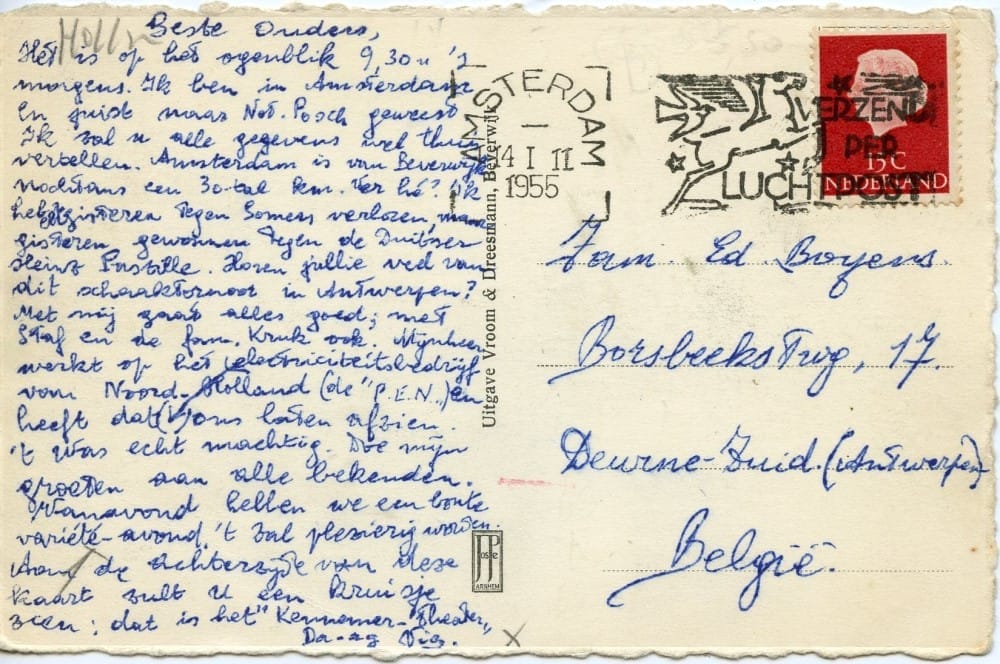 Beste Ouders,
Het is op het ogenblik 9,30 u 's
morgens. Ik ben in Amsterdam
en juist naar Not. Posch geweest
Ik zal u alle gegevens wel thuis
vertellen. Amsterdam is van Beverwijk
nochtans een 30-tal km. Ver hé? Ik
heb eergisteren tegen Somers verloren, maar
gisteren gewonnen tegen de Duitser
Heinz Pastille. Horen jullie veel van
dit schaaktornooi in Antwerpen?
Met mij gaat alles goed; met
Staf en de fam. Kruk ook. Mijnheer
werkt op het electriciteitsbedrijf
van Noord-Holland (de "P.E.N.„) en
heeft dat ons laten afzien.
't Was echt machtig. Doe mijn
groeten aan alle bekenden.
Vanavond hebben we een bonte
variété-avond. 't Zal plezierig worden.
Aan de achterzijde van deze
kaart zult u een kruisje
zien; dat is het "Kennemer-Theater„
Da-ag
Uitgave Vroom & Dreesmann, Beverwijk
JosPé
ARNHEM
x
AMSTERDAM
14 I 11
1955
VERZEND
PER
LUCHTPOST
15 C
NEDERLAND
Fam. Ed. Boyens.
BorsbeeksTwg, 17.
Deurne-Zuid. (Antwerpen)
België.